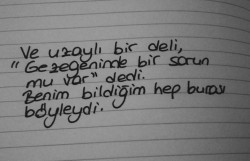 Ve uzaylı bir deli,
"Gezegeninde bir sorun
mu var" dedi.
Benim bildiğim hep burası
böyleydi.